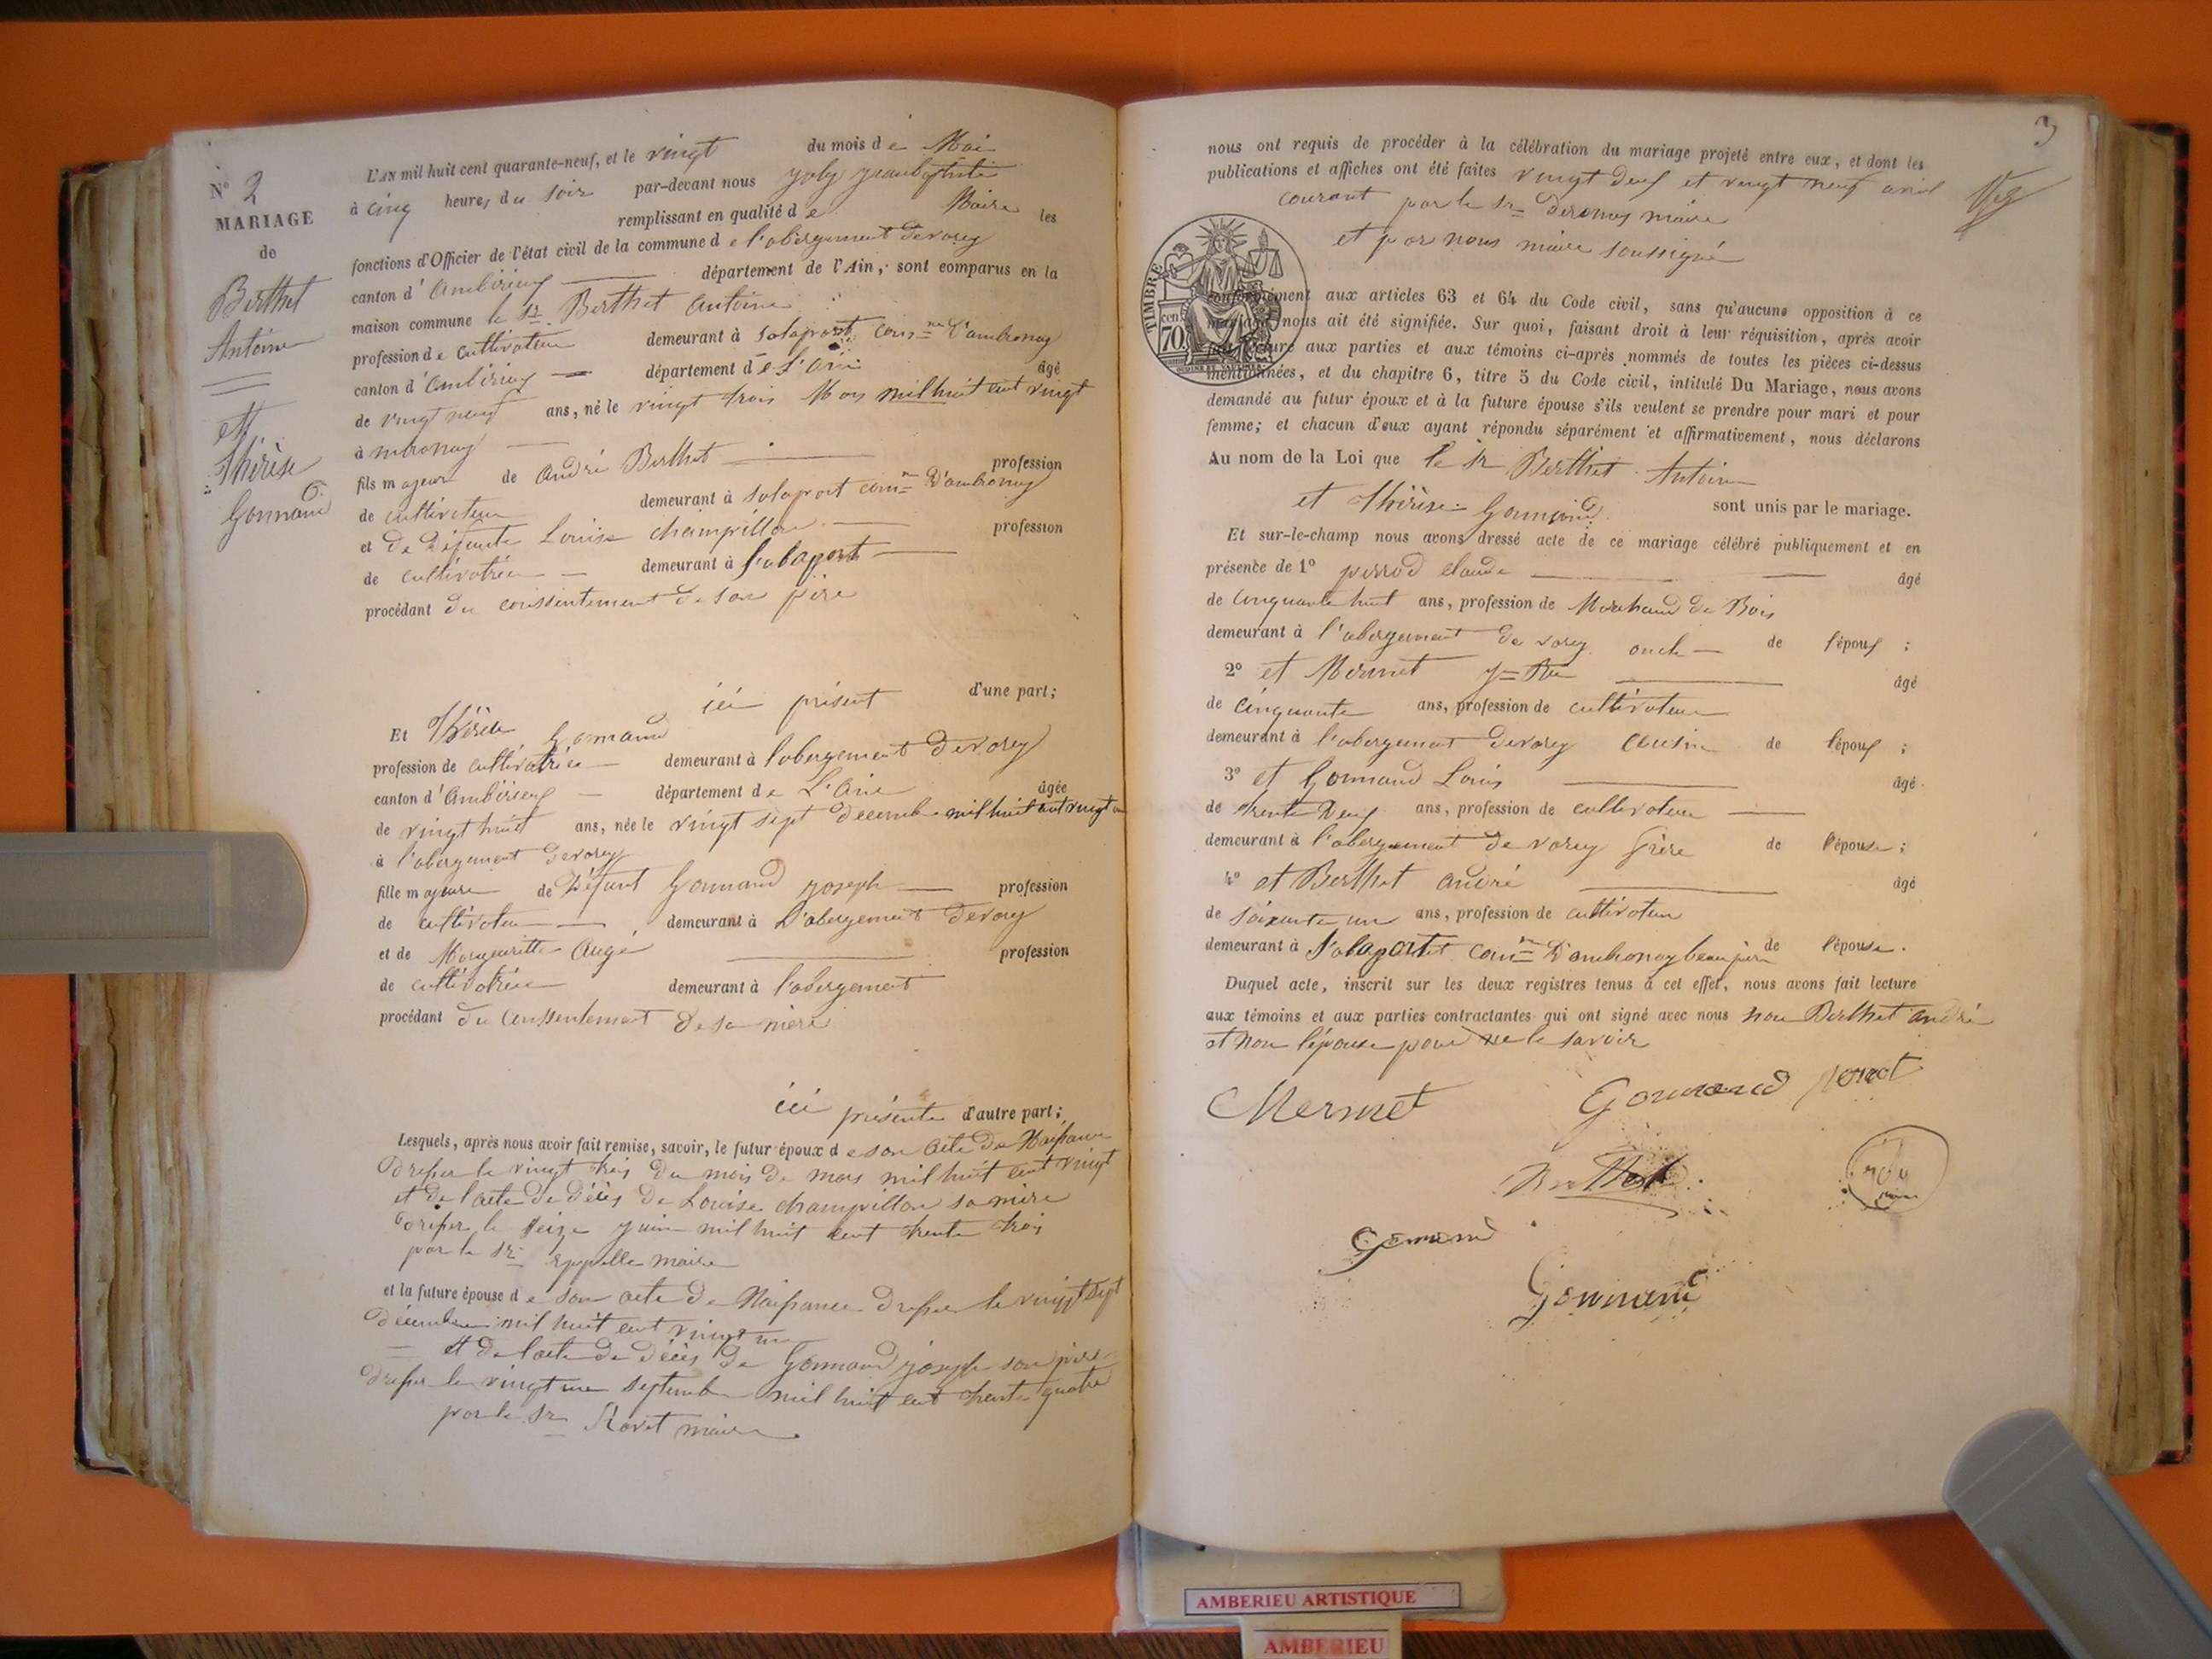 N° 2
MARIAGE
de
Berthet
Antoine
et
Thérèse
Gonnand
L'AN mil huit cent quarante-neuf, et le vingt du mois de Mai
à cinq heures du soir par-devant nous Joly jeanbaptiste
remplissant en qualité de Maire les
fonctions d'Officier de l'état civil de la commune de l'abergement devarey
canton d'ambérieux département de l'Ain, sont comparus en la
maison commune le Sr Berthet antoine
profession de cultivateur demeurant à Salaport comne d'ambronay
canton d'ambérieux département de l'ain âgé
de vingt neuf ans, né le vingt trois Mars mil huit cent vingt
à mbronay
fils majeur de André Berthet profession
de cultivateur demeurant à Salaport comne D'ambronay
et de Défunte Louise champillon profession
de cultivatrice demeurant à Salaport
procédant du consentement de son père
ici présent d'une part;
Et Thérèse Gonnand
profession de cultivatrice demeurant à l'abergement devarey
canton d'ambérieux département de L'Ain âgée
de vingt huit ans, née le vingt sept décembre mil huit cent vingt un
à l'abergement devarey
fille majeure de Défunt Gonnand joseph profession
de cultivateur demeurant à L'abergement devarey
et de Margueritte Augé profession
de cultivatrice demeurant à l'abergement
procédant du consentement de sa mère
ici présente d'autre part;
Lesquels, après nous avoir fait remise, savoir, le futur époux de son acte de Naissance
dressé le vingt trois du mois de mars mil huit cent vingt
et de l'acte de décès de Louise champillon sa mère
dressé le seize juin mil huit cent trente trois
par le Sr maire
et la future épouse de son acte de Naissance dressé le vingt sept
décembre mil huit cent vingt un
et de l'acte de décès de Gonnand joseph son père
dressé le vingt un septembre mil huit cent trente quatre
par le Sr Ravet maire
3
nous ont requis de procéder à la célébration du mariage projeté entre eux, et dont les
publications et affiches ont été faites vingt deux et vingt neuf avril
courant par le Sr maire
et par nous maire soussigné
TIMBRE
70 cen
conformément aux articles 63 et 64 du Code civil, sans qu'aucune opposition à ce
mariage nous ait été signifiée. Sur quoi, faisant droit à leur réquisition, après avoir
fait lecture aux parties et aux témoins ci-après nommés de toutes les pièces ci-dessus
mentionnées, et du chapitre 6, titre 5 du Code civil, intitulé Du Mariage, nous avons
demandé au futur époux et à la future épouse s'ils veulent se prendre pour mari et pour
femme; et chacun d'eux ayant répondu séparément et affirmativement, nous déclarons
Au nom de la Loi que le Sr Berthet Antoine
et Thérèse Gonnand sont unis par le mariage.
Et sur-le-champ nous avons dressé acte de ce mariage célébré publiquement et en
présence de 1° perrod claude âgé
de cinquante huit ans, profession de Marchand de Bois
demeurant à l'abergement de varey oncle de l'époux;
2° et Mermet âgé
de cinquante ans, profession de cultivateur
demeurant à l'abergement devarey cousin de l'époux;
3° et Gonnand Louis âgé
de trente Deux ans, profession de cultivateur
demeurant à l'abergement de varey frère de l'épouse;
4° et Berthet andré âgé
de soixante un ans, profession de cultivateur
demeurant à Salaport comne D'ambronay beau père de l'épouse.
Duquel acte, inscrit sur les deux registres tenus à cet effet, nous avons fait lecture
aux témoins et aux parties contractantes qui ont signé avec nous non Berthet andré
et non l'épouse pour ne le savoir
Mermet Gonnand perrot
Berthet
Gonnand
Gonnand
AMBERIEU ARTISTIQUE
AMBERIEU